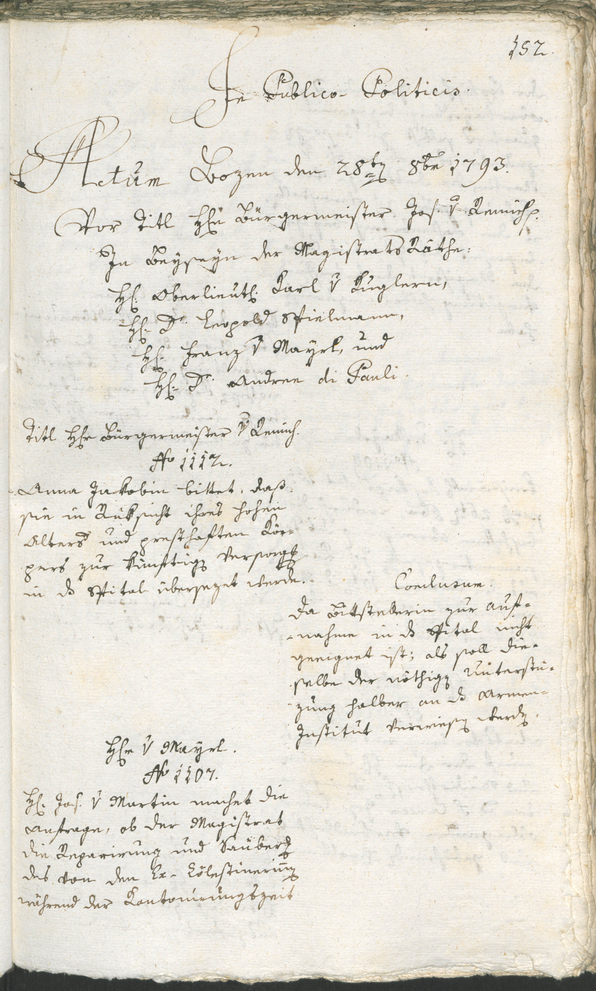 152.
In Publico Politicis.
Actum Bozen den 28ten 8ber 1793.
Vor Titl Hhn Bürgermeister Jos. v Remich.
In Beyseyn der Magistrats Räthe:
H. Oberlieut. Karl v Kuglern,
H. Dr. Leopold Spielmann,
H. Franz v Mayrl, und
H. Dr. Andree di Pauli.
Titl Hhr Bürgermeister v Remich.
No 1112.
Anna Jakobin bittet, daß
sie in Rüksicht ihres hohen
Alters und presthaften Kör-
pers zur künftig Versorgg
in ds Spital übersezet werde.
Conclusum:
Da Bittstellerin zur Auf-
nahme in ds Spital nicht
geeignet ist; als soll die-
selbe der nöthigen Unterstü-
zung halber an ds Armen-
Institut verwiesen werden.
Hhr v Mayrl.
No 1107.
H. Jos. v Martin machet die
Anfrage, ob der Magistrat
die Reparirung und Säuberg
des von den Ex-Cölestinerinen
während der Kantonirungszeit